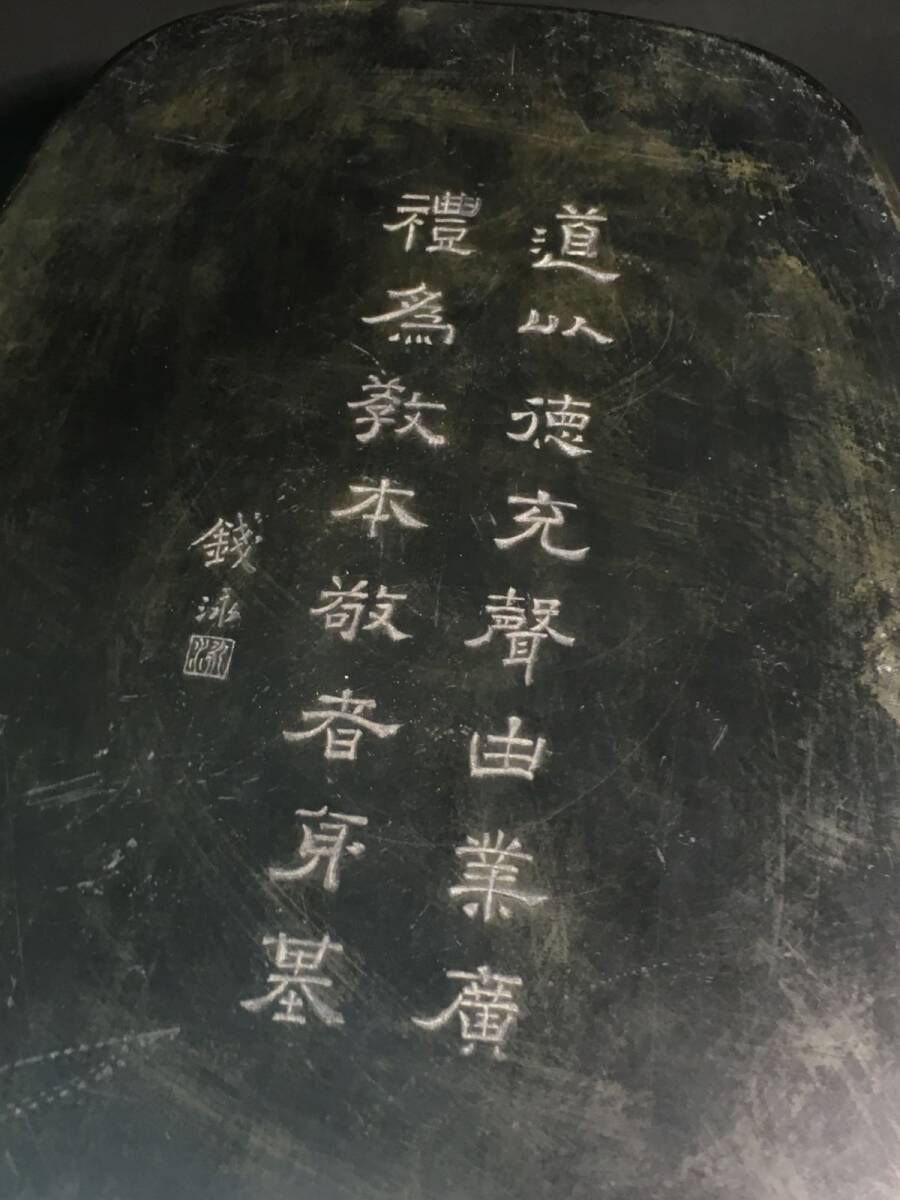 道以德充聲由業廣
禮為教本敬者身基
錢泳
泳